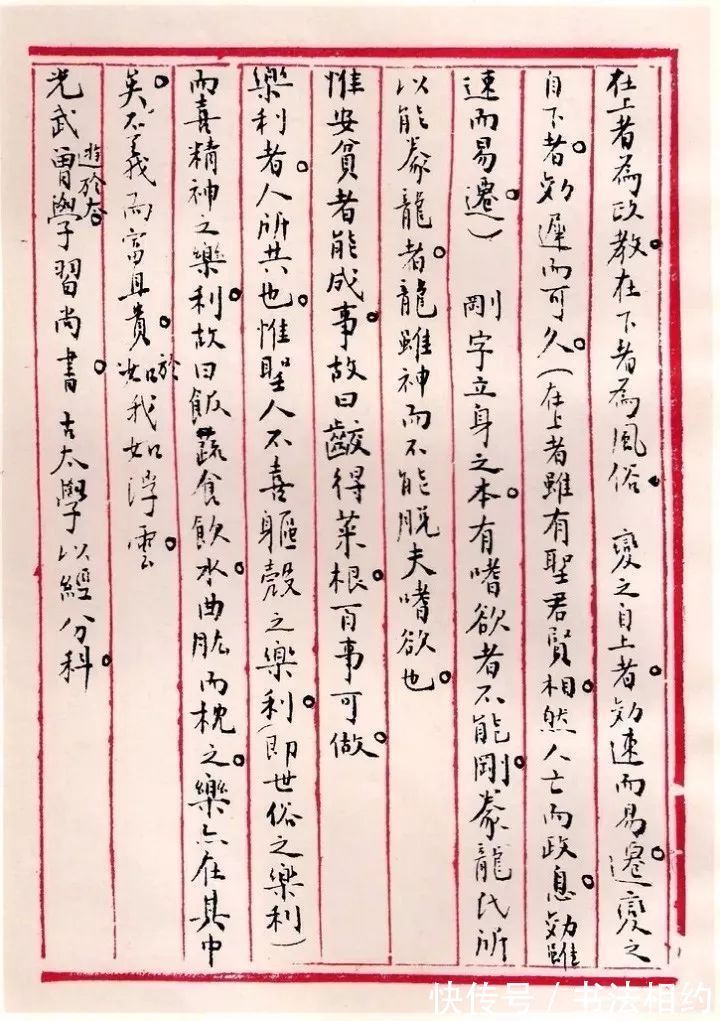 在上者為政教。在下者為風俗。變之自上者。効速而易遷。變之
自下者。効遲而可久。（在上者雖有聖君賢相。然人亡而政息。効雖
速而易遷。） 剛字立身之本。有嗜欲者不能剛。豢龍氏所
以能豢龍者。龍雖神而不能脱夫嗜欲也。
惟安貧者能成事。故曰齩得菜根。百事可做。
樂利者。人所共也。惟聖人不喜軀殼之樂利。（即世俗之樂利）
而喜精神之樂利。故曰飯蔬食飲水。曲肱而枕之。樂亦在其中
矣。不義而富且貴。於我如浮雲。
光武遊於太學習尚書。古太學以經分科。
快传号 / 书法相约